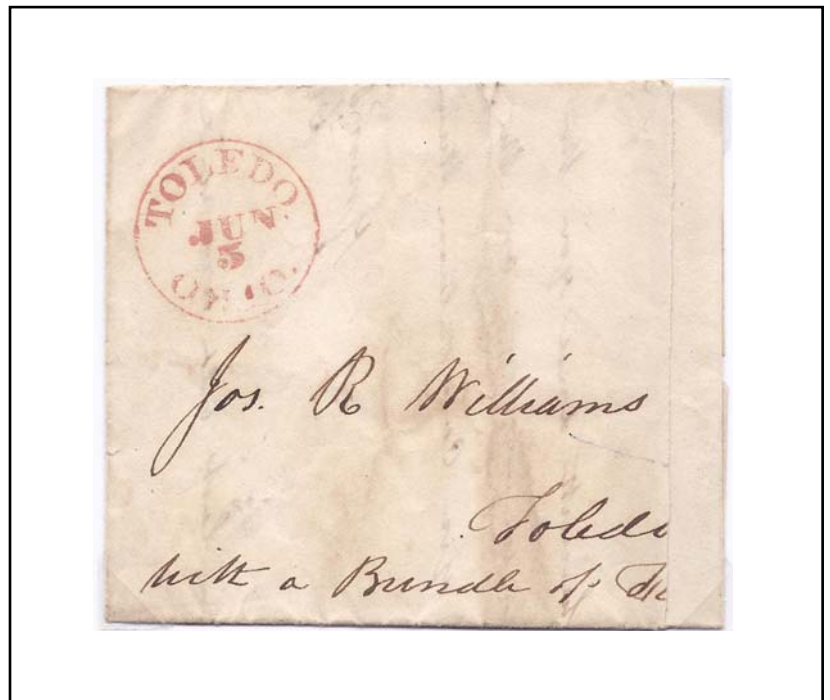 TOLEDO.
JUN
5
OHIO.
Jos. R Williams
Toledo
with a Bundle of